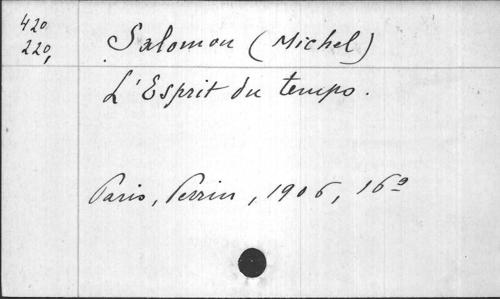 420
220,
Salomon (Michel)
L'Esprit du temps.
Paris, Perrin, 1906, 16°